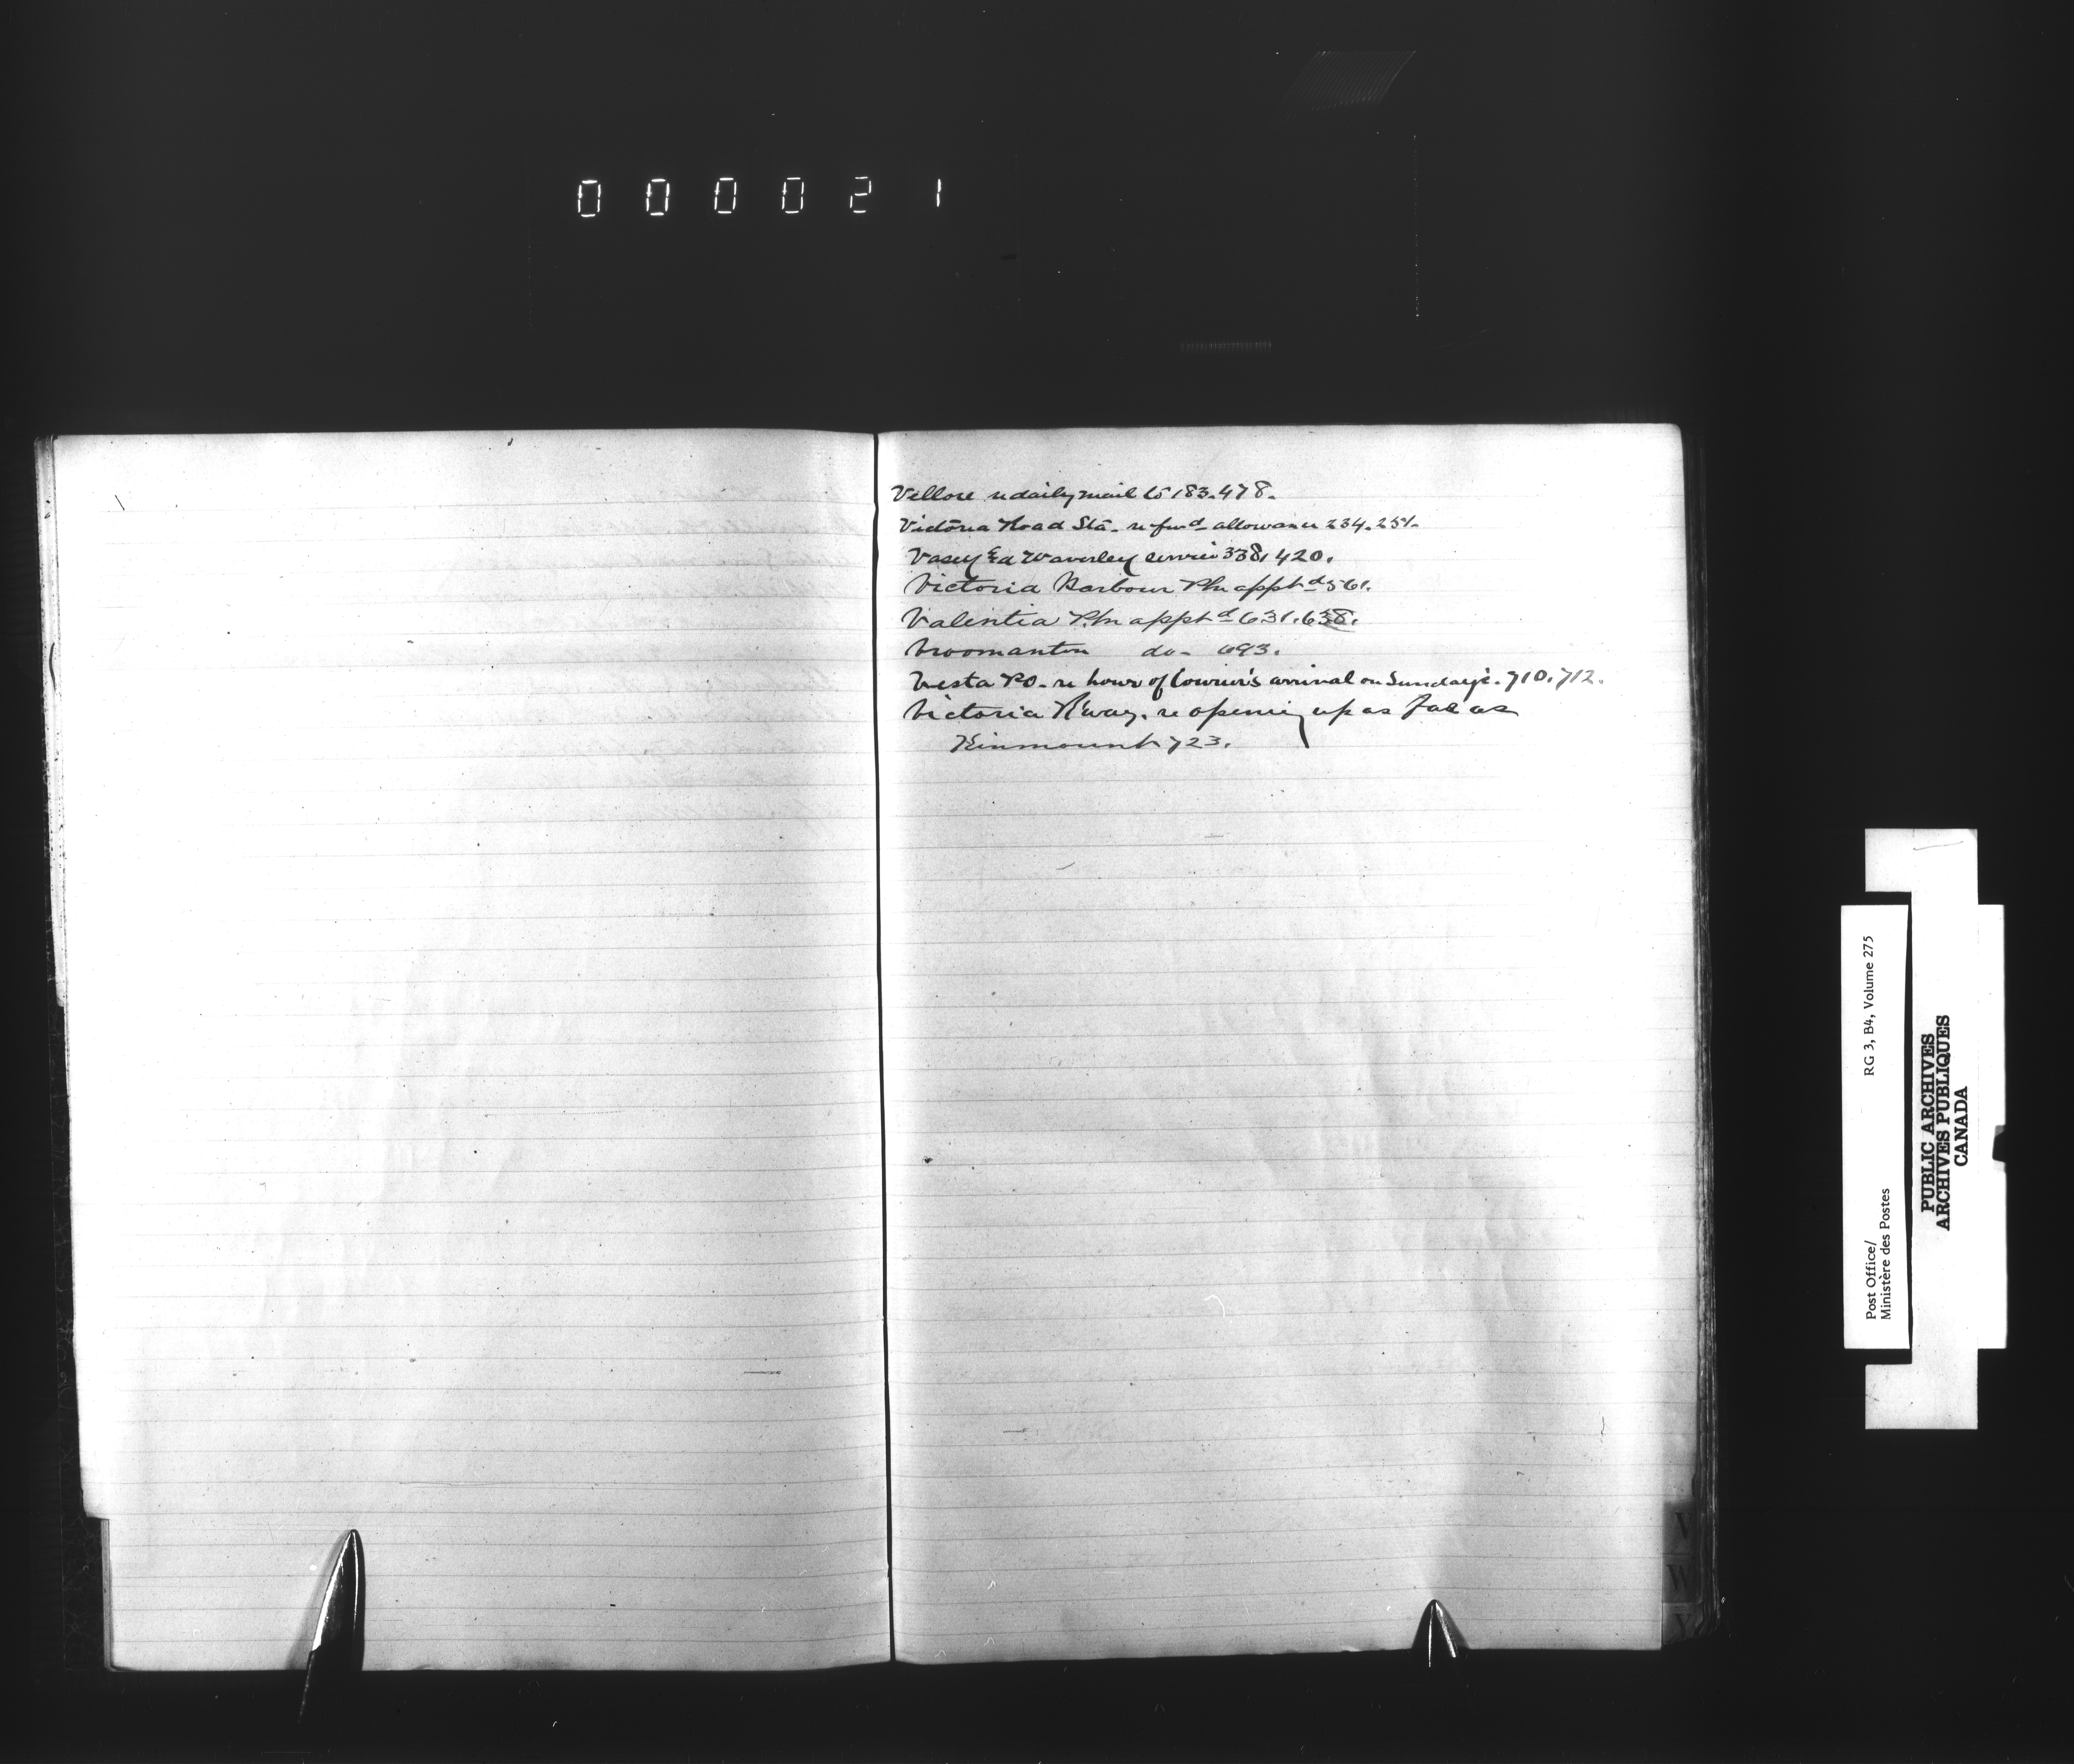 000021
Vellore re daily mail to 183.478.
Victoria Road Sta. re fwd allowance 234.251.
Vasey & Waverley service 338,420.
Victoria Harbour Pm apptd 561.
Valentia P.m apptd 631.638.
Vroomanton do- 693.
Vesta PO. re hour of Courier's arrival on Sunday's. 710.712.
Victoria R'way. re opening up as far as
Kinmount 723.
V
W
Y
Post Office/
Ministère des Postes
RG 3, B4, Volume 275
PUBLIC ARCHIVES
ARCHIVES PUBLIQUES
CANADA